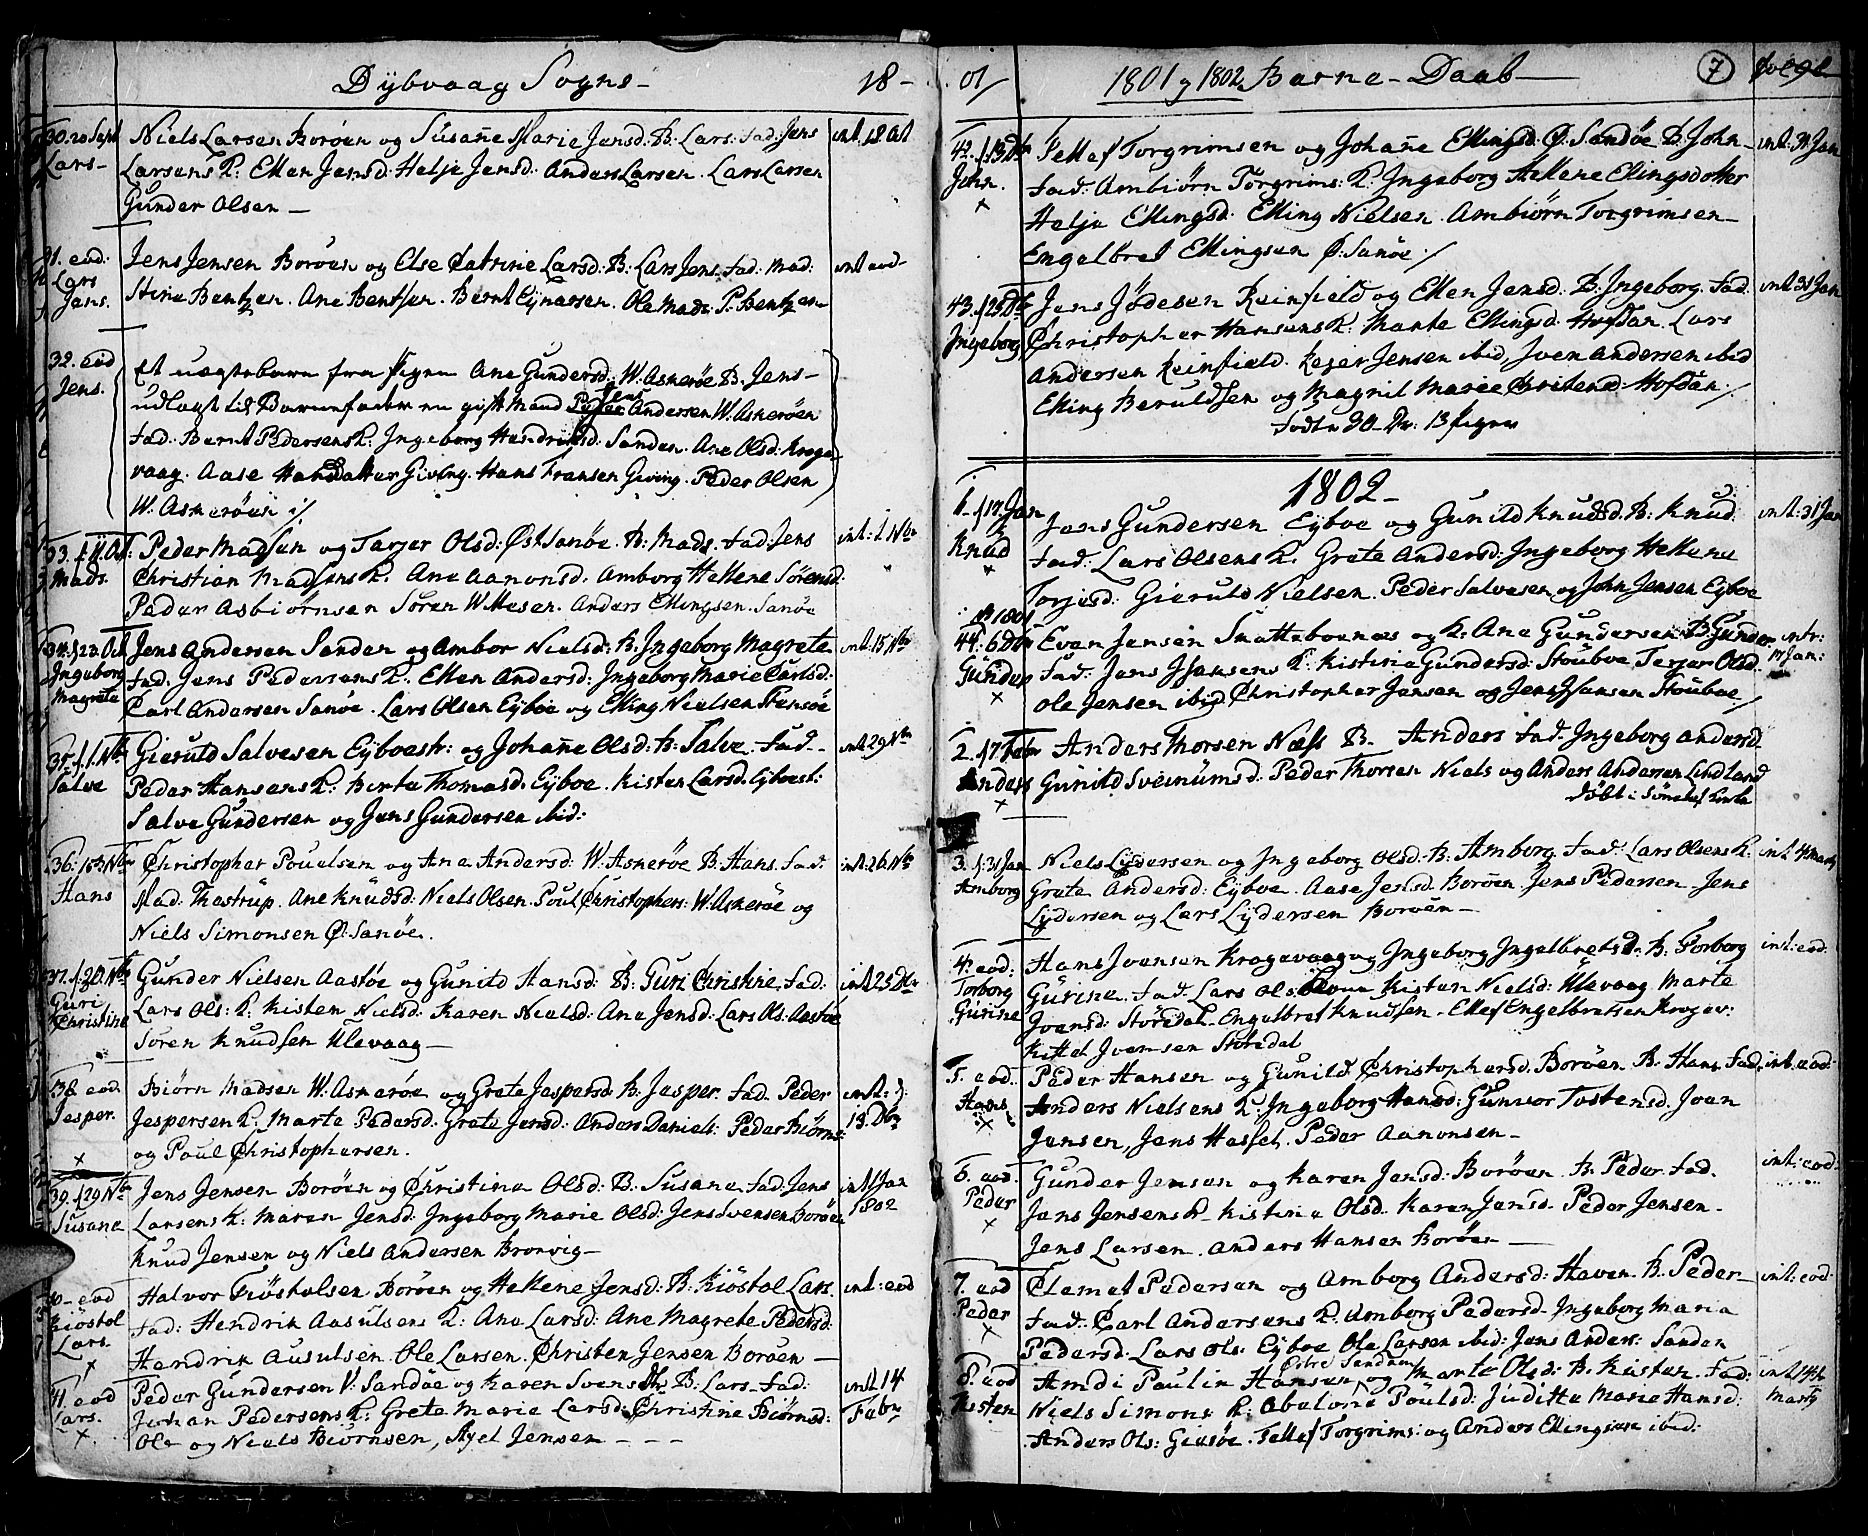 Dybvaag Sogns - 18-
30. 20 Sept Niels Larsen Borøen og Susane Marie Jensd: B: Lars. Fad: Jens int. 18 Oct
Lars- Larsens K: Ellen Jensd: Helje Jensd: Anders Larsen. Lars Larsen
Gunder Olsen -
31. eod: Jens Jensen Borøen og Else Catrine Larsd: B: Lars Jens. Fad: Mad: int eod-
Lars Jens. Stine Bentzen. Ane Bentsen. Bernt Eynarsen. Ole Mads: P: Bentzen
32. eod Et uægtebarn fra Pigen Ane Gundersd: W. Askerøe B. Jens-
Jens. udlagt til Barnefader en gift Mand Anders Andersen W. Askerøen
Fad: Bernt Pedersens K: Ingeborg Hendriksd: Sanden. Ane Olsd: Kroge-
vaag. Aase Hansdatter Giving. Hans Fransen Giving. Peder Olsen
W. Askerøen ./.
33. f 11 Oct: Peder Madsen og Tarjer Olsd: Øst Sanøe B: Mads. Fad: Jens int: 1 Nbr
Mads. Christian Madsens K. Ane Aanonsd. Amborg Hellene Sørensd.
Peder Asbiørnsen Søren W. Mesen. Anders Ellingsen. Sanøe
34. f 23 Oct Jens Andersen Sanden og Ambor Nielsd: B. Ingeborg Magrete int: 15 Nbr
Ingeborg Fad: Jens Pedersens K. Ellen Andersd: Ingeborg Marie Carlsd:
Magrete Carl Andersen Sanøe. Lars Olsen Eyboe og Elling Nielsen Stensøe
35. f 1. Nbr Gieruld Salvesen Eyboestr: og Johane Olsd: B: Salve. Fad- int 29 Nbr
Salve Peder Hansens K. Berte Thomasd. Eyboe. Kisten Larsd. Eyboest:
Salve Gundersen og Jens Gundersen ibid:
36. 15 Nbr Christopher Poulsen og Ane Andersd: W. Askerøe B: Hans. Fad: int. 26 Nbr
Hans Mad. Thestrup. Ane Knudsd: Niels Olsen. Poul Christophers: W. Askerøe og
Niels Simonsen Ø: Sanøe.
37. f 20 Nbr Gunder Nielsen Aastøe og Gunild Hansd: B: Guri Christine. Fad: int 25 Dbr
Guri Lars Ols: K. Kisten Nielsd: Karen Nielsd: Ane Jensd: Lars Ols: Aastøe
Christine Søren Knudsen Ulevaag -
38. eod. Biørn Madsen W. Askerøe og Grete Jespersd: B. Jesper. Fad. Peder int: d.
Jesper. Jespersen K. Marte Pedersd. Grete Jensd: Anders Daniels: Peder Biørns: 13. Dbr
og Poul Christophersen.
39. f 29 Nbr Jens Jensen Borøen og Christine Olsd: B. Susane. Fad: Jens int 1 Jan
Susane Larsens K: Maren Jensd: Ingeborg Marie Olsd: Jens Svensen Borøe: 1802
Knud Jensen og Niels Andersen Brorvig -
40 - eod Halvor Kiøstolsen Borøen og Hellene Jensd: B. Kiøstol Lars. int: eod
Kiøstol Fad: Hendrik Aasulsens K: Ane Larsd: Ane Magrete Pedersd:
Lars. Hendrik Ausulsen. Ole Larsen. Christen Jensen Borøen -
41. eod Peder Gundersen V: Sandøe og Karen Svensd: B: Lars. Fad: int 14
Lars. Johan Pedersens K: Grete Marie Larsd: Christine Biørnsd: Febr
Ole og Niels Biørnsen, Axel Jensen - - -
01/ 1801 og 1802 Barne - Daab 7
42. f 13 Dbr Tellef Torgrimsen og Johane Ellingsd: Ø: Sandøe B. John- int. 31 Jan
John. Fad: Ambiørn Torgrims: K: Ingeborg Hellene Ellingsdotter
Helje Ellingsd. Elling Nielsen. Ambiørn Torgrimsen -
Engelbret Ellingsen Ø: Sanøe /.
43. f 25 Dbr Jens Jødesen Reinfield og Ellen Jensd: B. Ingeborg. Fad. int. 31 Jan
Ingeborg Christopher Hansens K: Marte Ellingsd. Hofdan. Lars
Andersen Reinfield. Rejer Jensen ibid, Iven Andersen ibid
Elling Beruldsen og Magnil Marie Christensd. Hofdan. /.
Fødte 30 Dr: 13 Pigen
1802 -
1. f 17 Jan Jens Gundersen Eyboe og Gunild Knudsd. B. Knud int: 31 Jan
Knud Fad: Lars Olsens K. Grete Andersd: Ingeborg Hellene
Torjusd: Gieruld Nielsen. Peder Salvesen og John Jensen Eyboe
1801
44. 6 Dbr Even Jensen Snattebonæs og K: Ane Gundersen B. Gunder intr:
Gunder Fad: Jens Jensens K. Kistine Gundersd: Stouboe. Terjer Olsd. 17 Jan:
Ole Jensen ibid Christopher Jensen og Jens Hansen Stouboe /.
2. f 7 Febr Anders Thorsen Næss B. Anders Fad. Ingeborg Andersd
Anders Gunild Sveinumsd: Peder Thorsen Niels og Anders Andersen Lindland
døbt i Søndeløf Kirke
3. f 31 Jan Niels Lydersen og Ingeborg Olsd: B. Amborg. Fad. Lars Olsens K. int 4 Marty
Amborg Grete Andersd: Eyboe. Aase Jensd. Borøen. Jens Pedersen. Jens
Lydersen og Lars Lydersen Borøen -
4. eod: Hans Ivensen Krogevaag og Ingeborg Ingelbretsd. B. Torborg int: eod:
Torborg Gurine. Fad. Lars Ols: Kisten Nielsd: Ulevaag Marte
Gurine Ivensd: Støredal. Engelbret Knudsen - Ellef Engelbretsen Krogev:
Kittel Ivensen Støredal
5. eod. Peder Hansen og Gunild Christophersd. Borøen. B. Hans Fad. int. eod:
Hans Anders Nielsens K: Ingeborg Hansd: Gunvor Tostensd. Iven
Jensen, Jens Hassel. Peder Aanonsen -
6. eod. Gunder Jensen og Karen Jensd: Borøen. B. Peder. Fad. int: eod:
Peder Jens Jensens K. Kistine Olsd. Karen Jensd. Peder Jensen.
Jens Larsen. Anders Hansen Borøen -
7. eod Clemet Pedersen og Amborg Andersd: Haven. B. Peder - int: eod:
Peder Fad. Carl Andersens K. Amborg Pedersd. Ingeborg Maria
Pedersd. Lars Ols: Eyboe Ole Larsen ibid: Jens Anders: Sanden
8. eod Amdi Paulin Hansen og Marte Olsd: B. Kisten. Fad: int 14
Kisten Niels Simons K. Abelone Poulsd: Juditte Marie Hansd: Marty
Anders Ols: Giesøe. Tellef Torgrims: og Anders Ellingsen ibid: